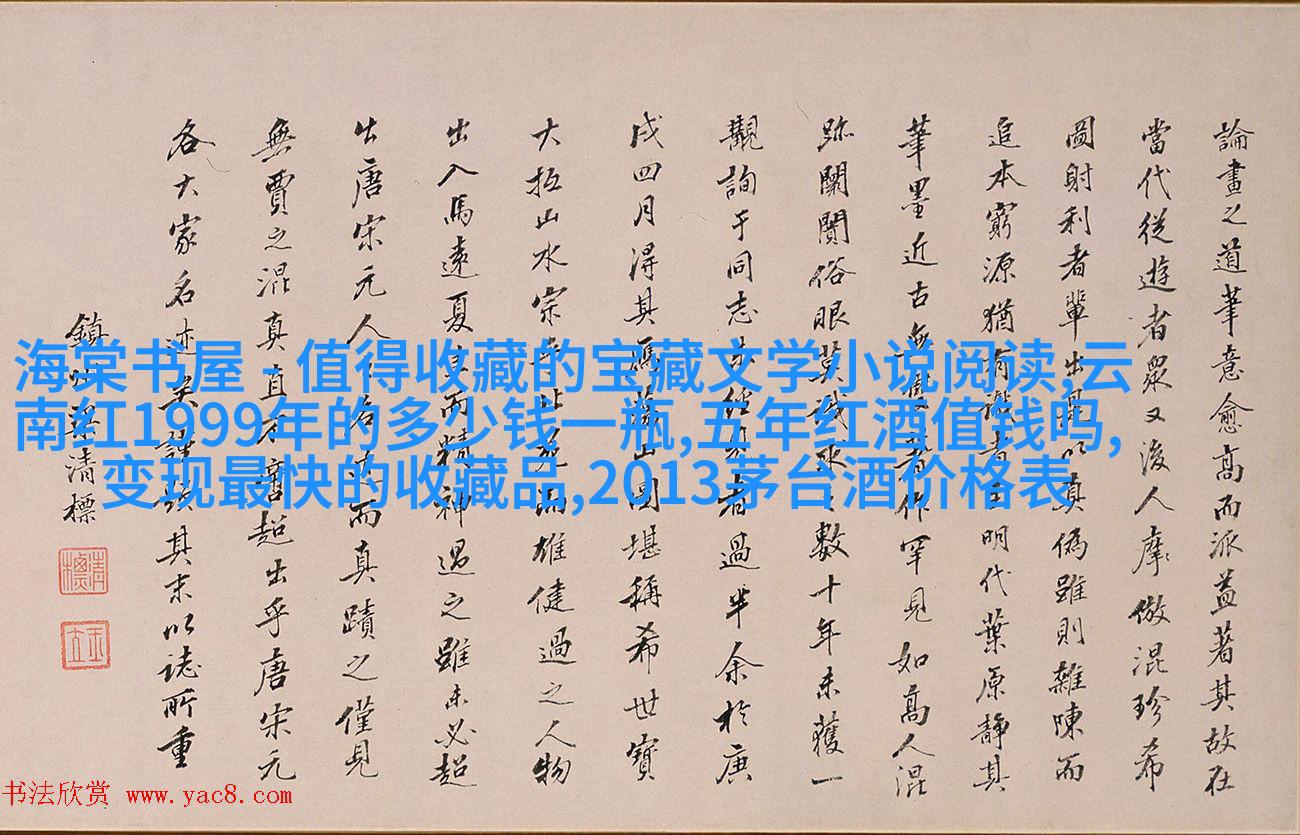 論畫之道筆意愈高而派益著其故在
當代從遊者眾又後人摩倣混珍希
圖射利者輩出是以真偽雖則雜陳而
追本窮源猶有識者自明代葉原靜其
筆墨近古無者作罕見如高人混
跡闤闠俗眼莫識數十年未獲一
觀詢于同志者過半余於庚
戌四月得其山圖堪稱希世寶
大抵山水宗雄健過之人物
出入馬遠夏圭而精神過之雖未必超
出唐宋元人而真蹟之僅見
無賈之混真直不超出乎唐宋元
各大家名迹其末以誌所重
鎮清標
清標
海棠书屋 - 值得收藏的宝藏文学小说阅读,云
南红1999年的多少钱一瓶,五年红酒值钱吗,
变现最快的收藏品,2013茅台酒价格表
书法欣赏 www.yac8.com